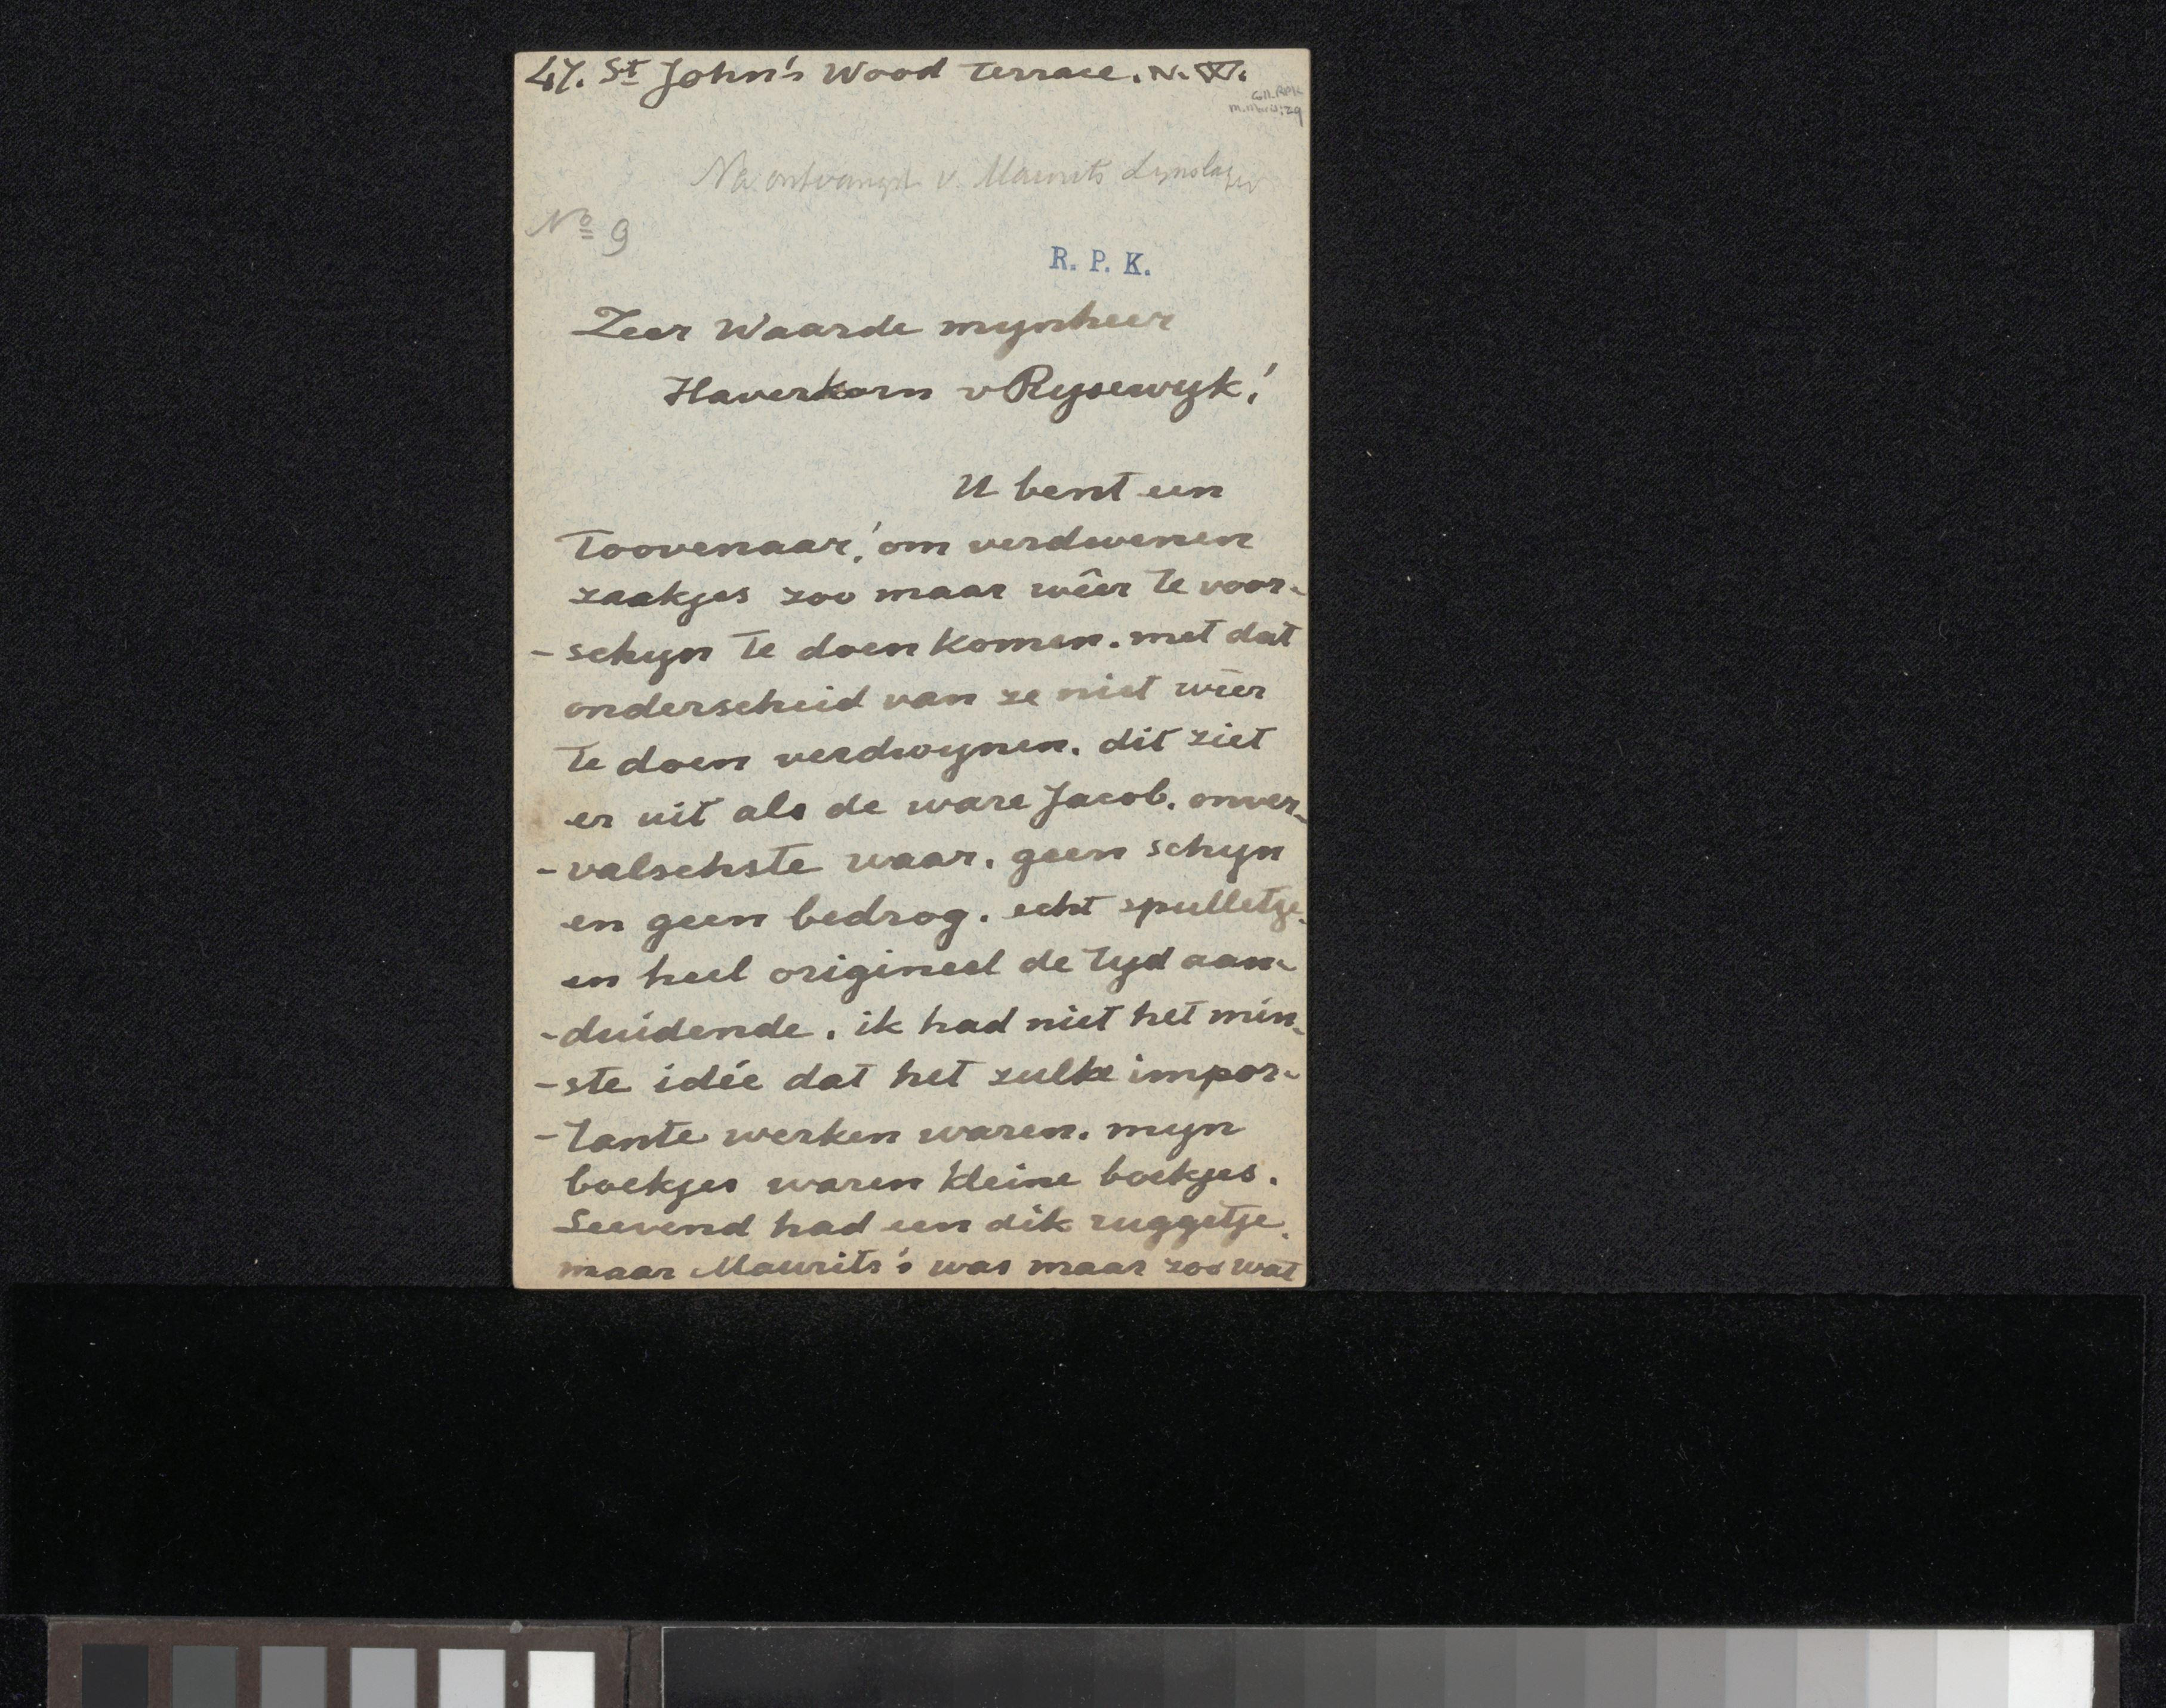 47. St John's Wood Terrace. N.W.
Na ontvangst v. Maurits Lynslager
No 9
R. P. K.
Zeer Waarde mynheer
Haverkorn v Rysewyk!
U bent een
Toovenaar! om verdwenen
zaakjes zoo maar wêer te voor-
-schyn te doen komen. met dat
onderscheid van ze niet wêer
te doen verdwynen. dit ziet
er uit als de ware Jacob. onver-
-valschste waar. geen schyn
en geen bedrog. echt spulletje.
en heel origineel de tyd aan-
-duidende. ik had niet het min-
-ste idée dat het zulke impor-
-tante werken waren. myn
boekjes waren kleine boekjes.
Leevend had een dik ruggetje.
maar Maurits's was maar zoo wat